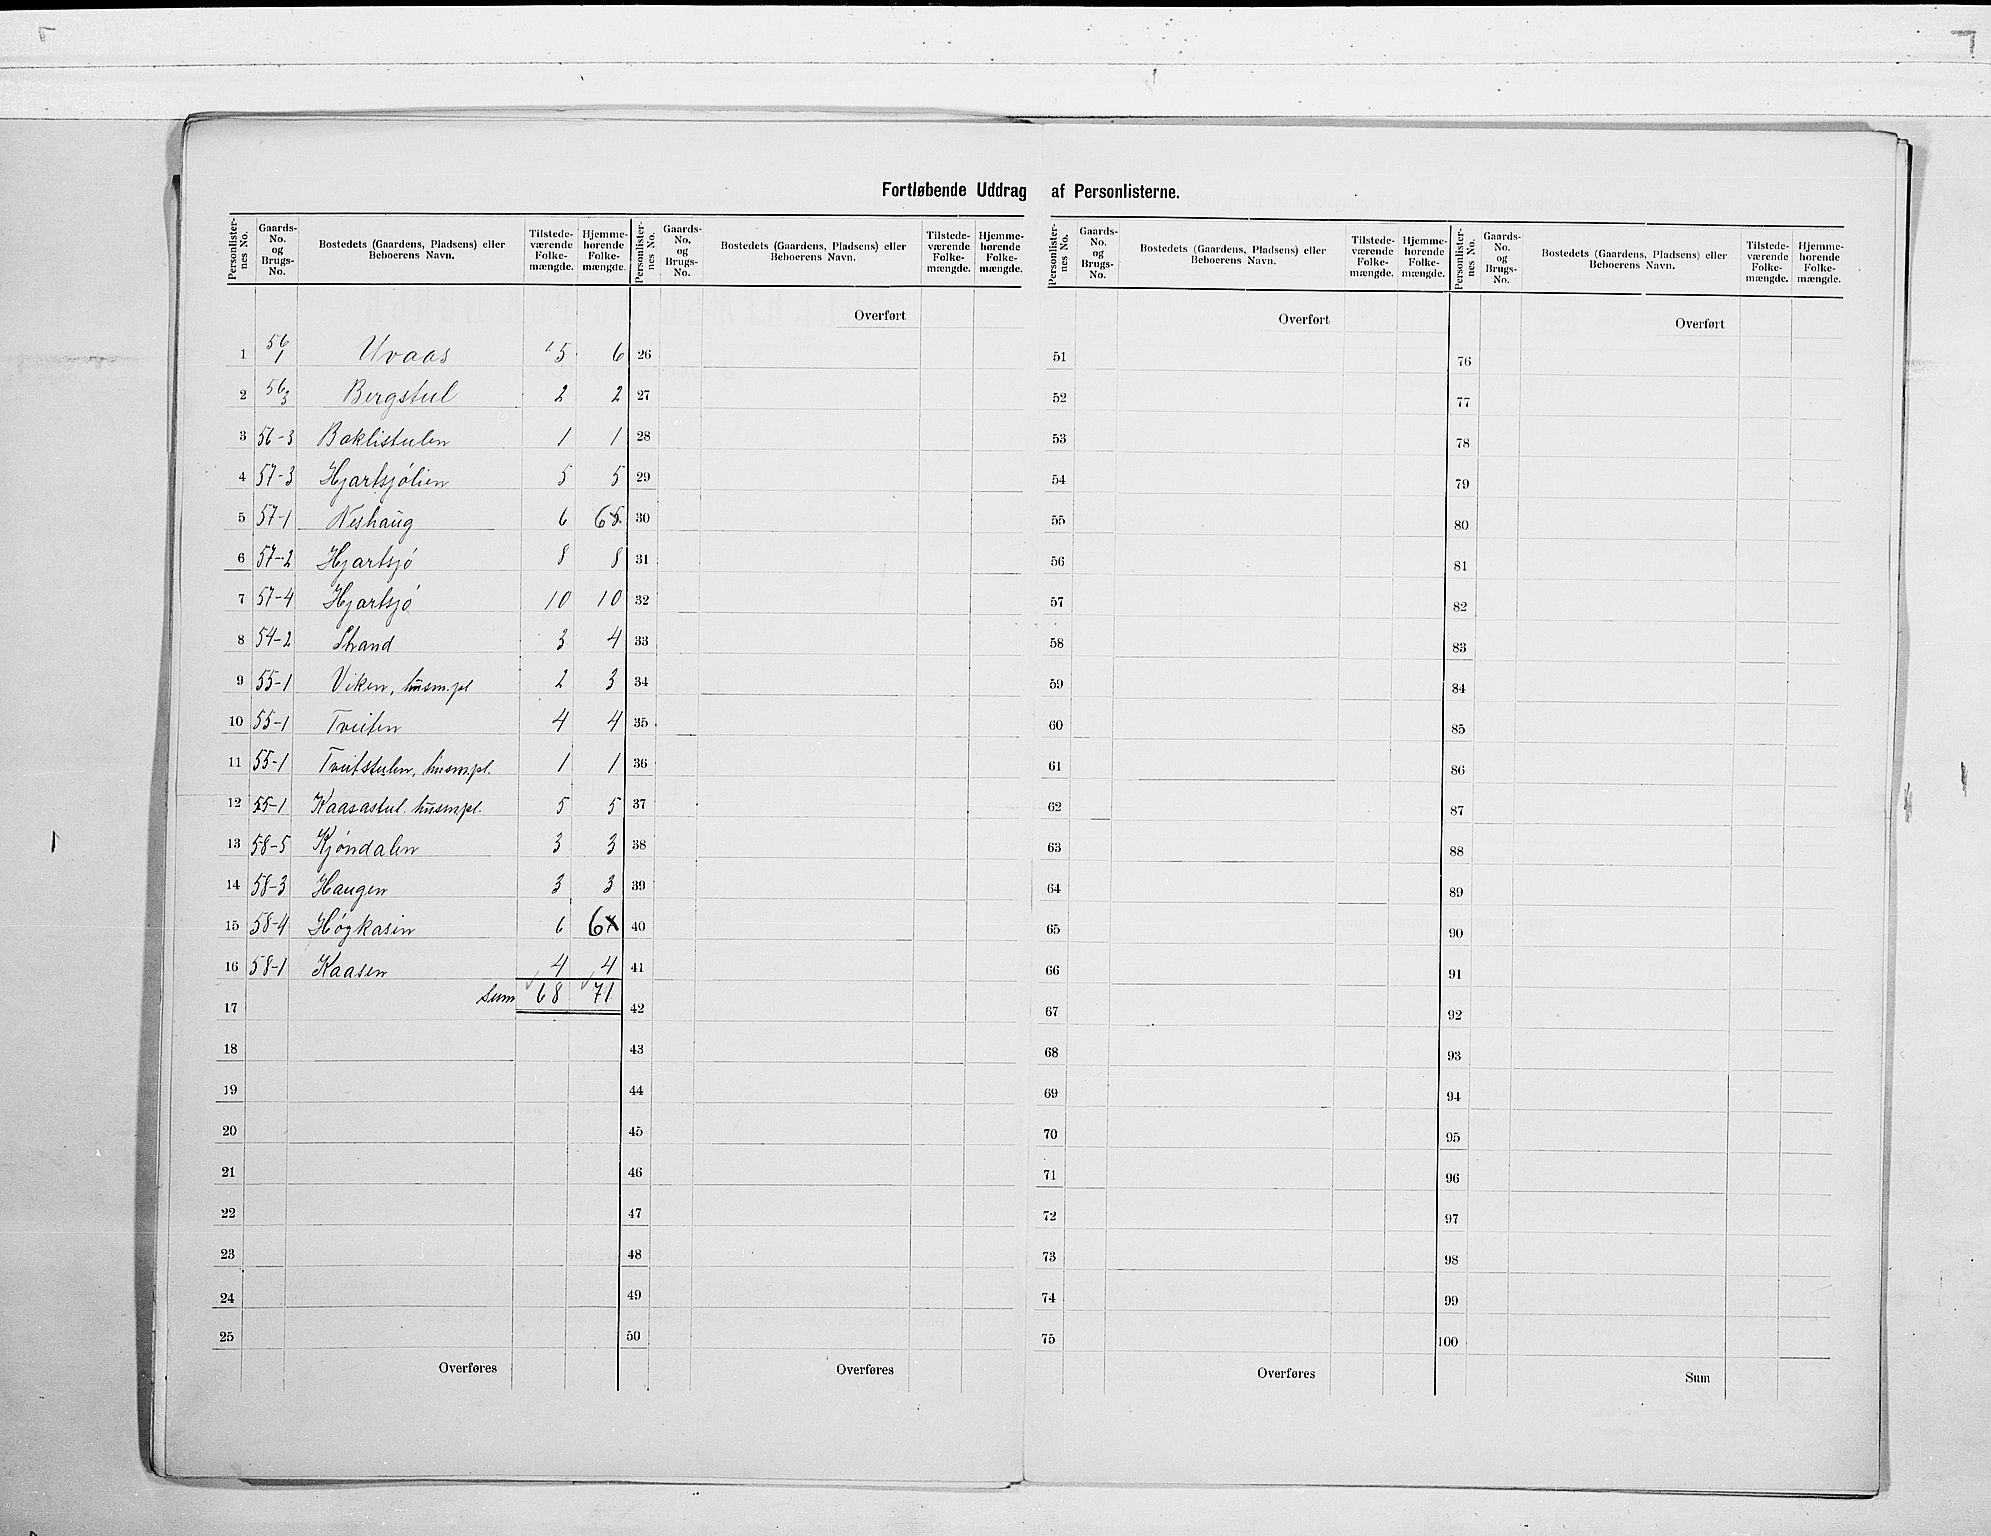 Fortløbende Uddrag af Personlisterne.
Personlisternes No. Gaards-No. og Brugs-No. Bostedets (Gaardens, Pladsens) eller Beboerens Navn. Tilstedeværende Folkemængde. Hjemmehørende Folkemængde.
1 56/1 Uvaas 5 6
2 56/3 Bergstul 2 2
3 56-3 Baklistulen 1 1
4 57-3 Hjartsjølien 5 5
5 57-1 Neshaug 6 6
6 57-2 Hjartsjø 8 8
7 57-4 Hjartsjø 10 10
8 54-2 Strand 3 4
9 55-1 Viken, husm.pl 2 3
10 55-1 Tveiten 4 4
11 55-1 Tveitstulen, husm.pl. 1 1
12 55-1 Kaasastul. husm.pl. 5 5
13 58-5 Kjøndalen 3 3
14 58-3 Haugen 3 3
15 58-4 Høgkasin 6 6
16 58-1 Kaasen 4 4
17 Sum 68 71
18
19
20
21
22
23
24
25
Overføres
Personlisternes No. Gaards-No. og Brugs-No. Bostedets (Gaardens, Pladsens) eller Beboerens Navn. Tilstedeværende Folkemængde. Hjemmehørende Folkemængde.
Overført
26
27
28
29
30
31
32
33
34
35
36
37
38
39
40
41
42
43
44
45
46
47
48
49
50
Overføres
Personlisternes No. Gaards-No. og Brugs-No. Bostedets (Gaardens, Pladsens) eller Beboerens Navn. Tilstedeværende Folkemængde. Hjemmehørende Folkemængde.
Overført
51
52
53
54
55
56
57
58
59
60
61
62
63
64
65
66
67
68
69
70
71
72
73
74
75
Overføres
Personlisternes No. Gaards-No. og Brugs-No. Bostedets (Gaardens, Pladsens) eller Beboerens Navn. Tilstedeværende Folkemængde. Hjemmehørende Folkemængde.
Overført
76
77
78
79
80
81
82
83
84
85
86
87
88
89
90
91
92
93
94
95
96
97
98
99
100
Sum